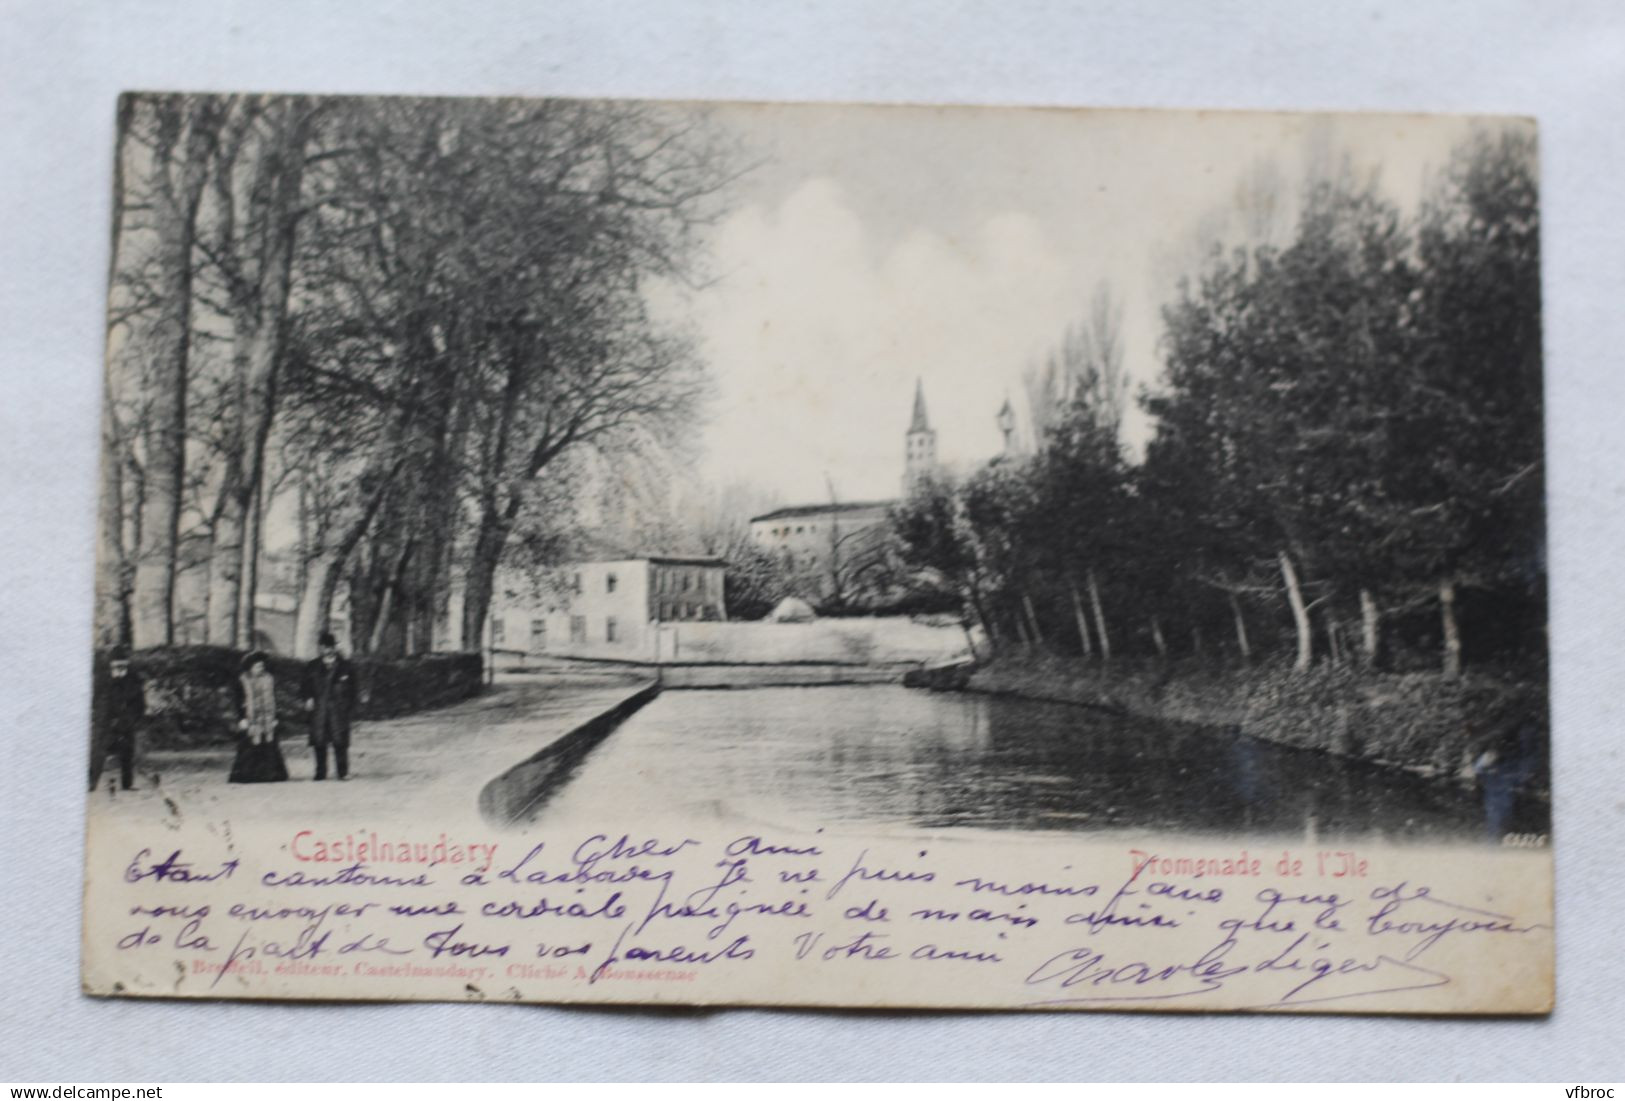 Castelnaudary
Promenade de l'Ile
Cher ami
Etant cantonné à Lasbordes Je ne puis moins faire que de
vous envoyer une cordiale poignée de main ainsi que le bonjour
de la part de tous vos parents Votre ami Charles Liger
Breffeil, éditeur, Castelnaudary. Cliché A. Boussenac
vfbroc